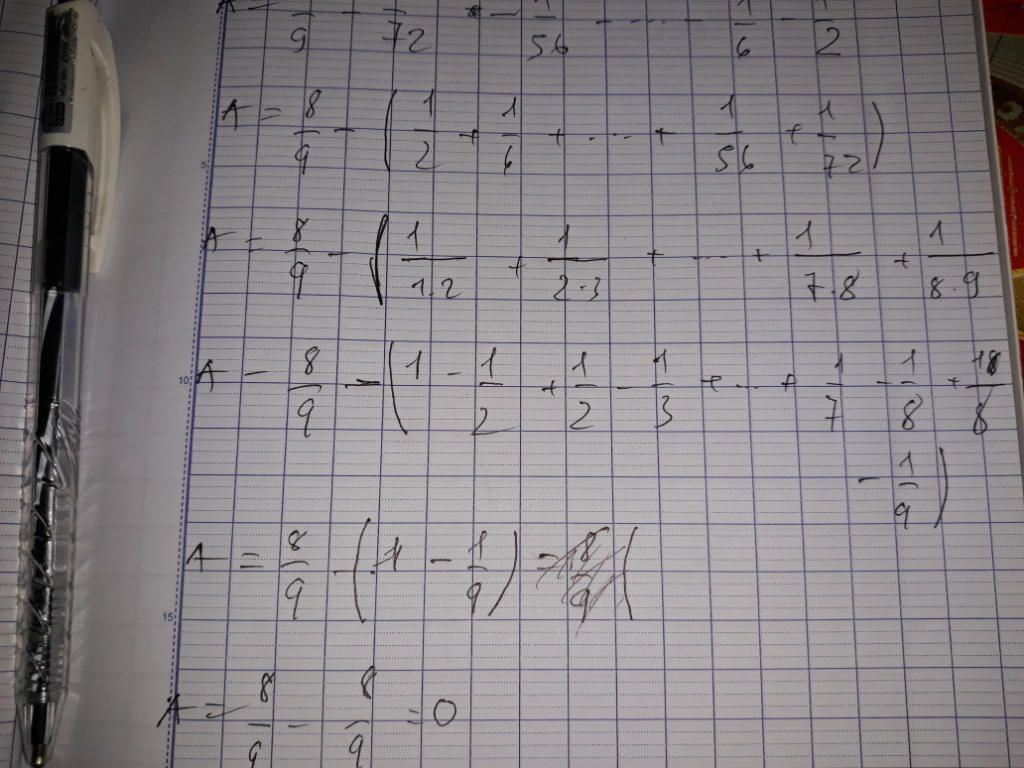 A = 8/9 - 1/72 - 1/56 - ... - 1/6 - 1/2
A = 8/9 - ( 1/2 + 1/6 + ... + 1/56 + 1/72 )
5
A = 8/9 - ( 1/1.2 + 1/2.3 + ... + 1/7.8 + 1/8.9
10 A = 8/9 - ( 1 - 1/2 + 1/2 - 1/3 + ... + 1/7 - 1/8 + 1/8
- 1/9 )
A = 8/9 - ( 1 - 1/9 ) = 8/9 (
15
A = 8/9 - 8/9 = 0